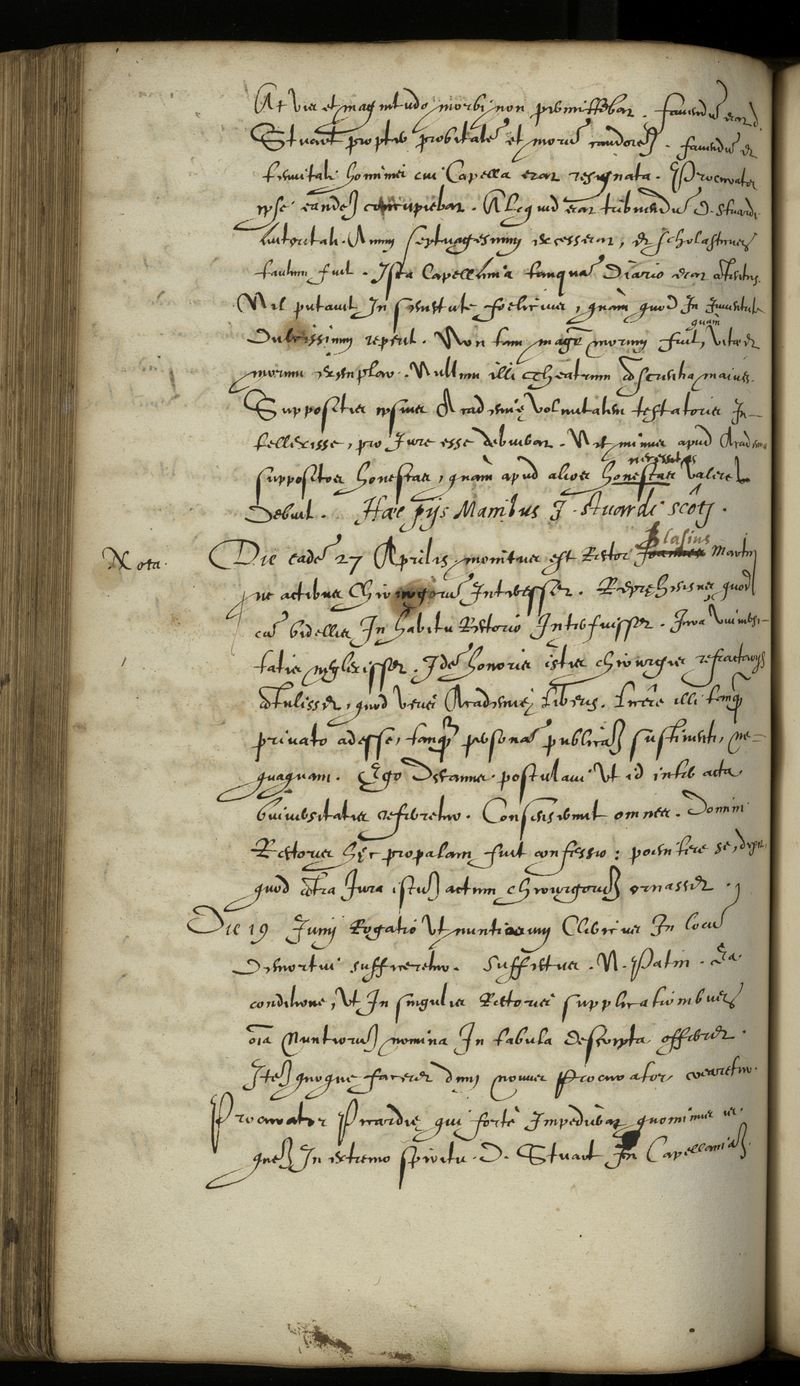 At vis et magnitudo morbi non permittebat. favendum erat d.
Stuart propter probitatem et morum candorem. favendum et
tenuitati hominis cui Capella erat resignata. Procurator
ipse eandem concupiebat. Aliquid erat tribuendum D. Stuardi
autoritati. Annum septuagesimum excesserat, et scholasticus
tantum fuit. Ista Capellania tanquam Diario erat
Nil putavit In senectute foelicius, quam quod In Juventute
Dulcissimum reperit. Non tam magr̄ morum fuit, quam vitae et
morum exemplar. Nullum illi Theatrum conscientia maius.
Suppositis ipsius Academiae voluntatem testatoris In-
tellexisse, pro Jure esse debuerat. Nec minus apud Academiae
suppositos honestas, quam apud alios honestas necessitas valere
Debuit. Haec pijs Manibus J. Stuardi scoti.
Nota. Die eadem 27 Aprilis monitus est Rector Joannes Blasius Martin
ne actibus Chirurgorum Interesset. Reprehensus quod
cum bidellis In habitu Rectorio Interfuisset. Jura Universi-
tatis neglexisse. Idem honoris istis chirurgis refractarijs
contulisset, quod veris Academiae liberis. licere illi tanquam
privato adesse, tanquam personam publicam sustinenti, ne-
quaquam. Ego Decanus postulavi ut id inter acta
Universitatis referretur. Consenserunt omnes. Domini
Rectoris haec propalam fuit confessio: poenitere se,
quod contra Jura istum actum chirurgorum ornasset.
Die 19 Junij Rogatio ut nuntiorum Clericus In locum
Demortui sufficeretur. Suffectus. N. Patin. Ea
conditione, ut In singulis Rectoris supplicationibus
oīa Nuntiorum nomina In tabula descripta offerret.
Item quoque faceret dum novus Procurator crearetur.
Procurator Picardiae qui forte Impediebat quominus
quem In extremo spiritu. D. Stuart In Capellaniam